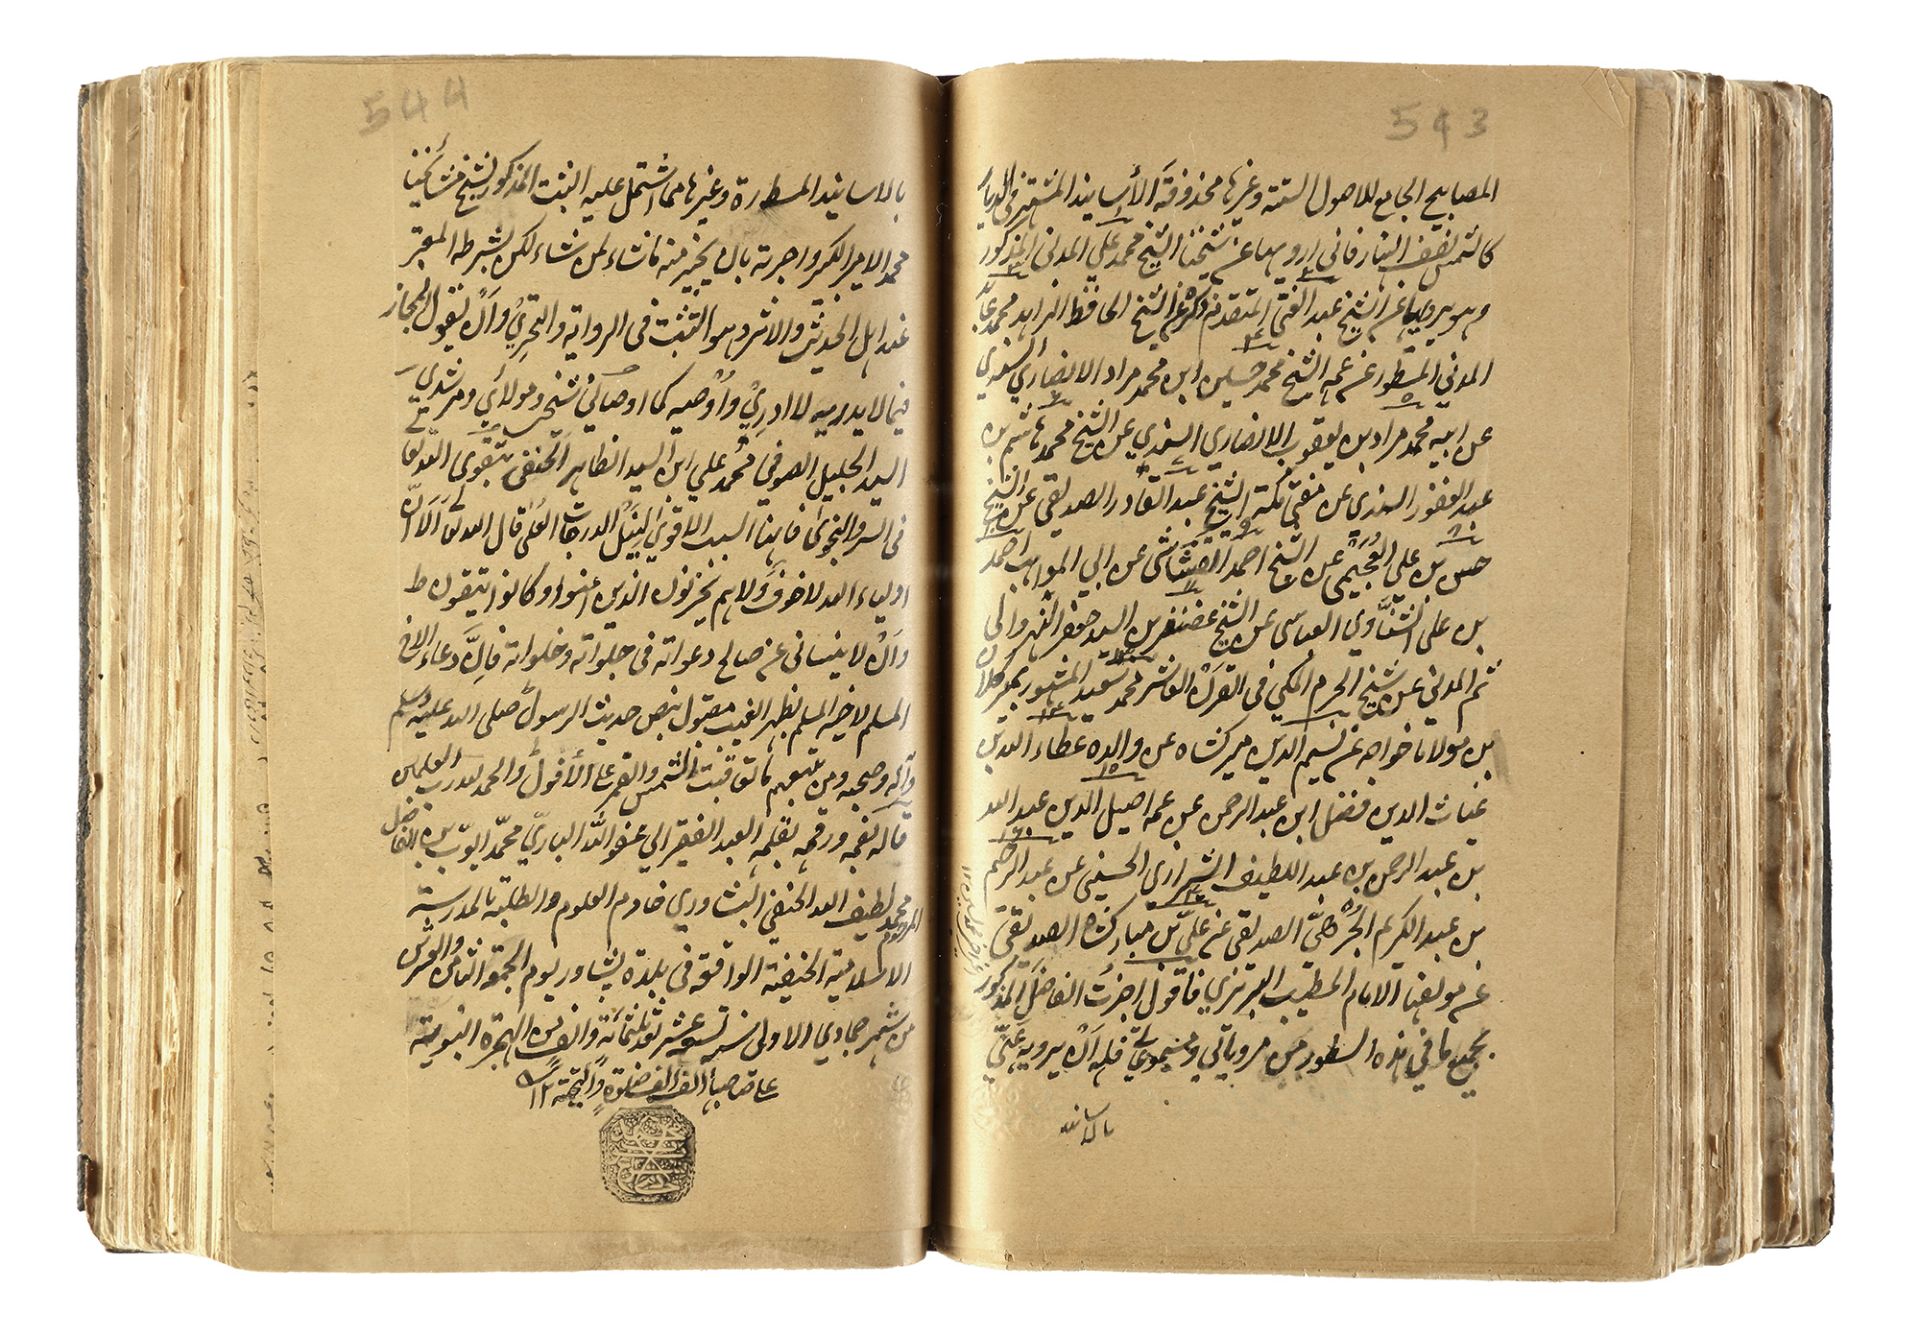 543
المصابيح الجامع للاصول الستة وغيرها محذوفة الأسانيد المشتهر في الديار
كالشمس نصف النهار فاني ارويها عن شيخنا الشيخ محمد علي المدني المذكور
وهو يرويها عن الشيخ عبد الغني المتقدم ذكره عن الشيخ الحافظ الزاهد محمد عابد
المدني المسطور عن عمه الشيخ محمد حسين ابن محمد مراد الانصاري السندي
عن ابيه محمد مراد بن يعقوب الانصاري السندي عن الشيخ محمد هاشم بن
عبد الغفور السندي عن مفتي مكة الشيخ عبد القادر الصديقي عن الشيخ
حسن بن علي العُجَيْمي عن الشيخ احمد القشاشي عن ابي المواهب احمد
بن علي الشنّاوي العباسي عن الشيخ غضنفر بن السيد جعفر النهروالي
ثم المدني عن شيخ الحرم المكي في القرن العاشر محمد سعيد المشهور بمير كلان
بن مولانا خواجه عن نسيم الدين ميرك شاه عن والده عطاء الدين
غياث الدين فضل ابن عبد الرحمن عن عمه اصيل الدين عبد الله
بن عبد الرحمن بن عبد اللطيف الشيرازي الحسيني عن عبد الرحيم
بن عبد الكريم الجُرْهيّ الصديقي عن علي بن مبارك شاه الصديقي
عن مولفها الامام الخطيب التبريزي فاقول اجزتُ الفاضل المذكور
بجميع ما في هذه السطور من مروياتي ومسموعاتي فله أن يرويه عنّي
بالاسانيد
544
بالاسانيد المسطورة وغيرها مما اشتمل عليه الثبت المذكور لشيخ مشائخنا
محمد الامير الكبير واجزته بان يجيز منه ما شاء لمن شاء لكن بشرطه المعتبر
عند اهل الحديث والاثر وهو التثبت في الرواية والتحري وأن يقول المجاز
فيما لا يدريه لا ادري وأوصيه كما اوصاني شيخي ومولائي ومرشدي
السيد الجليل الصوفي محمد علي ابن السيد الظاهر الحنفي بتقوى الله تعالى
في السر والنجوى فانها السبب الاقوى لنيل الدرجات العلى قال الله تعالى ألا ان
اولياء الله لا خوف ولا هم يحزنون الذين امنوا وكانوا يتقون ط
وأن لا ينساني عن صالح دعواته في جلواته وخلواته فانّ دعاء الاخ
المسلم لاخيه المسلم بظهر الغيب مقبول بنص حديث الرسول صلى الله عليه وسلم
وآله وصحبه ومن تبعهم ما تعاقبت الشمس والقمر على الأفول والحمد لله رب العلمين
قاله بفمه ورقمه بقلمه العبد الفقير الى عفو الله الباري محمد ايوب بن الفاضل
محمد لطيف الله الحنفي البشاوري خادم العلوم والطلبة بالمدرسة
المرحوم
الاسلامية الحنيفية الواقعة في بلدة پشاور يوم الجمعة الثامن والعشرين
من شهر جمادي الاولى سنة تسع عشر بعد ثلثمائة والف من الهجرة النبوية
على صاحبها ألف ألف صلوة والتحية ١٢